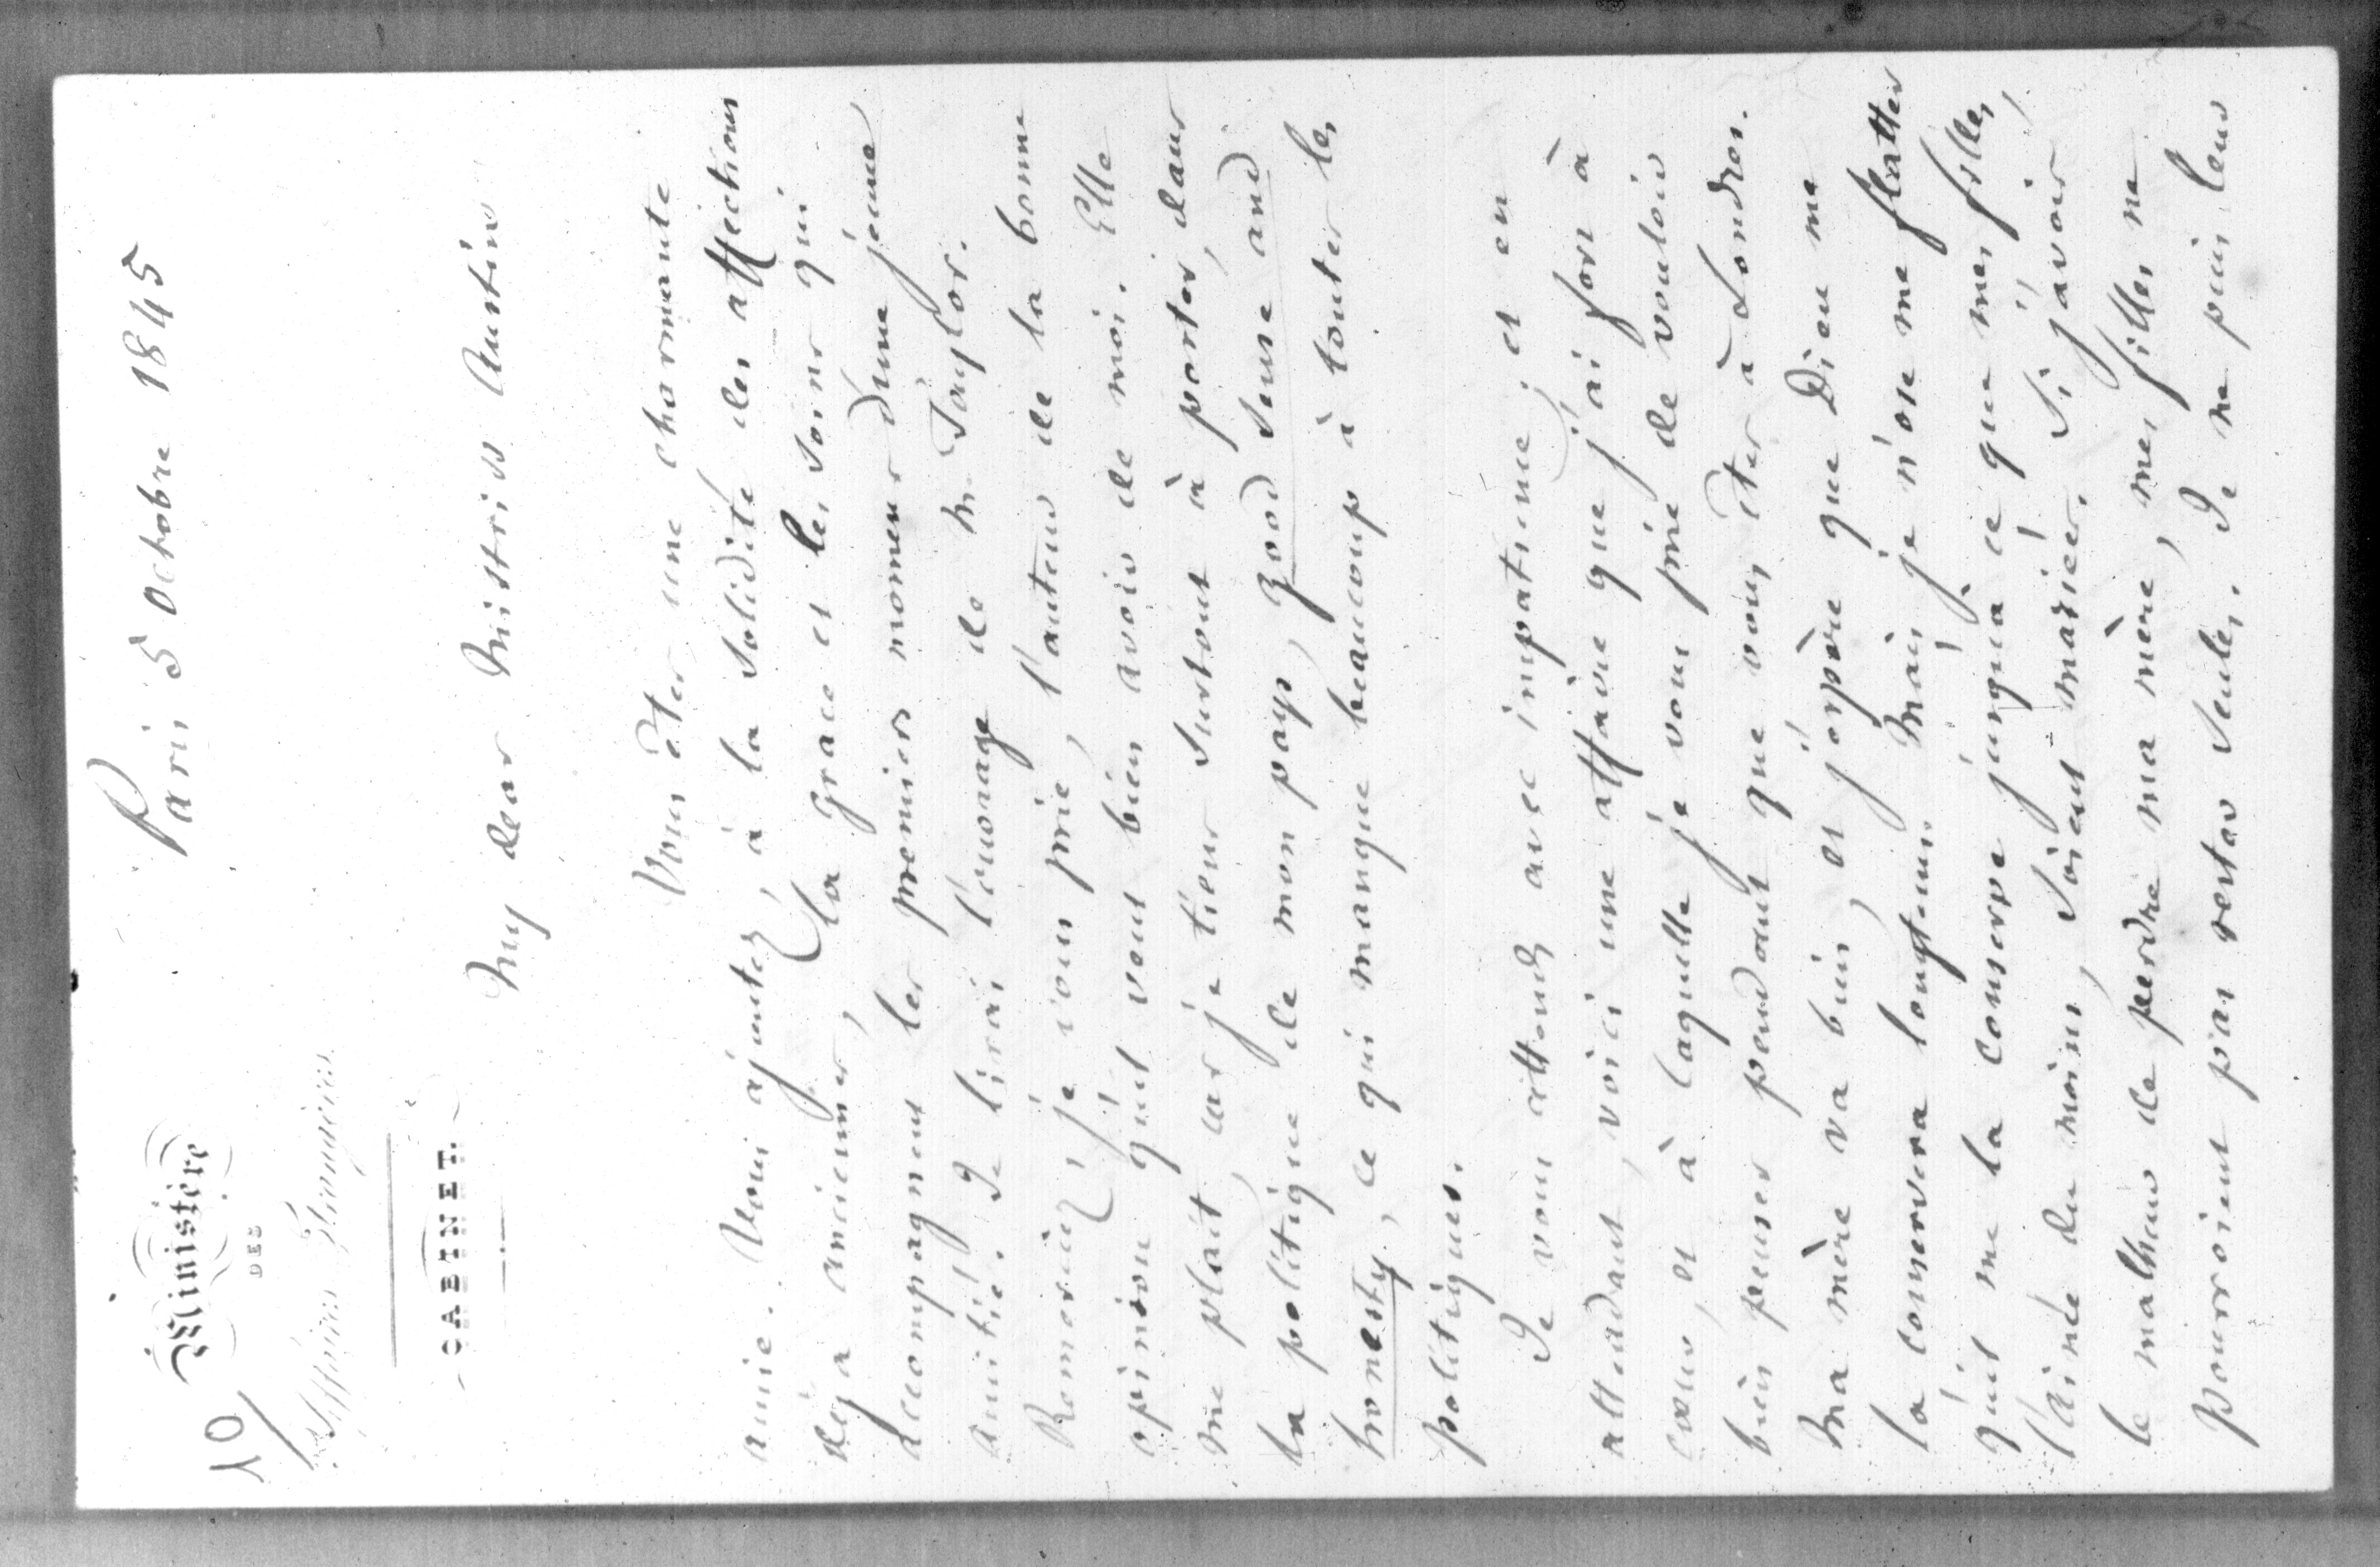 10/
Ministère
DES
Affaires Étrangères
CABINET.
Paris 5 Octobre 1845
My dear Mistriss Austin
Vous êtes une charmante
amie. Vous ajoutez, à la solidité des affections
déja anciennes, la grace et les soins qui
accompagnent les premiers momens d'une jeune
amitié. Je lirai l'ouvrage de M. Taylor.
Remerciez, je vous prie, l'auteur de la bonne
opinion qu'il veut bien avoir de moi. Elle
me plait, car je tiens surtout à porter, dans
la politique de mon pays, good sense and
honesty, ce qui manque beaucoup à toutes les
politiques.
Je vous attends avec impatience, et en
attendant, voici une affaire que j'ai fort à
cœur, et à laquelle je vous prie de vouloir
bien penser pendant que vous êtes à Londres.
Ma mère va bien, et j'espère que Dieu me
la conservera longtems. Mais je n'ose me flatter
qu'il me la conserve jusqu'à ce que mes filles,
l'ainée du moins, soient mariées. Si j'avois
le malheur de perdre ma mère, mes filles ne
pourroient pas rester seules. Je ne puis leur